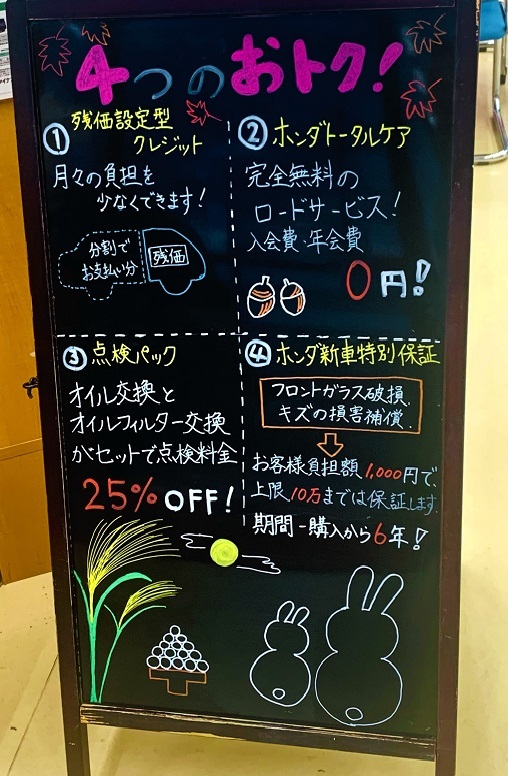 4つのおトク!
① 残価設定型
クレジット
月々の負担を
少なくできます!
分割で
お支払い分
残価
② ホンダトータルケア
完全無料の
ロードサービス!
入会費・年会費
0円!
③ 点検パック
オイル交換と
オイルフィルター交換
がセットで点検料金
25% OFF!
④ ホンダ新車特別保証
フロントガラス破損、
キズの損害補償
お客様負担額1,000円で、
上限10万までは保証します
期間-購入から6年!